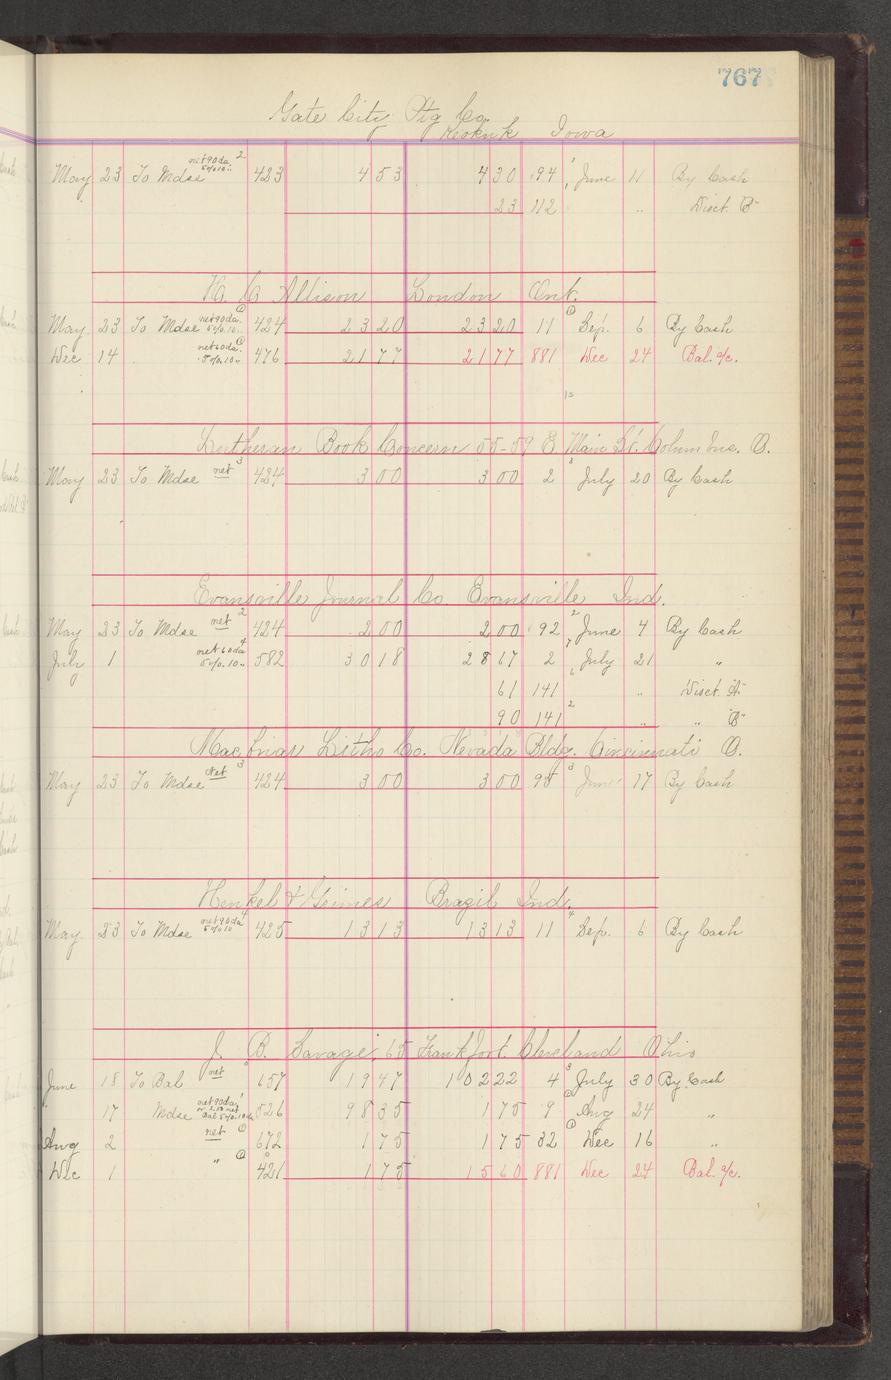 767
Gate City Ptg Co.
Keokuk Iowa
May 23 To Mdse net 90 da 5% 10 2 423 4 53 4 30 194 1 June 11 By Cash
23 112 " Disct. B
Allison London Ont.
May 23 To Mdse net 90 da. 5% 10 1 424 23 20 23 20 11 1 Sep. 6 By Cash
Dec 14 net 60 da. 5% 10 476 21 77 21 77 881 Dec 24 Bal. a/c.
Lutheran Book Concern 55-59 E Main St. Columbus. O.
May 23 To Mdse net 3 424 3 00 3 00 2 3 July 20 By Cash
Evansville Journal Co. Evansville Ind.
May 23 To Mdse net 2 424 2 00 2 00 92 2 June 4 By Cash
July 1 net 60 da 5% 10 4 582 30 18 28 67 2 July 21 "
61 141 " Disct. A
90 141 2 " " B
Litho Co. Nevada Bldg. Cincinnati O.
May 23 To Mdse Net 3 424 3 00 3 00 98 3 June 17 By Cash
Henkel & Grimes Brazil Ind.
May 23 To Mdse net 90 da 5% 10 4 425 13 13 13 13 11 4 Sep. 6 By Cash
J. B. Savage, 65 Frankfort. Cleveland Ohio
June 18 To Bal net 657 19 47 102 22 4 3 July 30 By Cash
17 Mdse net 90 da 526 98 35 1 75 9 Aug 24 "
Aug 2 net 672 1 75 1 75 32 Dec 16 "
Dec 1 " 421 1 75 15 60 881 Dec 24 Bal. a/c.